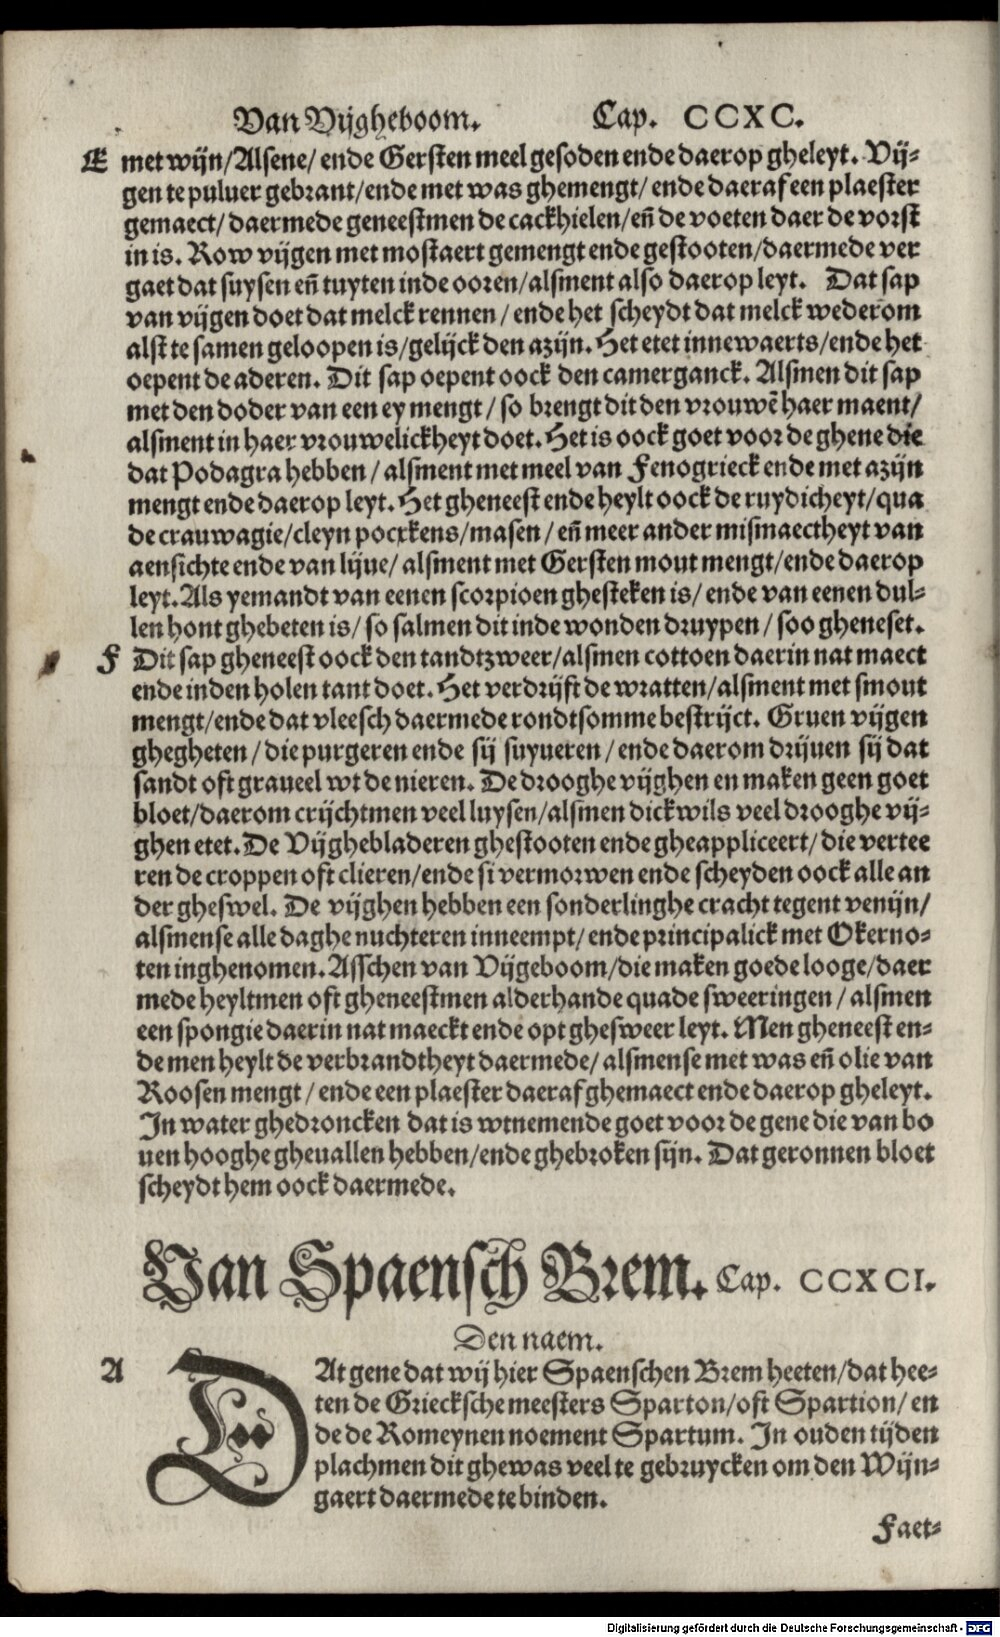 Van Vijgheboom. Cap. CCXC.
E met wijn/Alsene/ ende Gersten meel gesoden ende daerop gheleyt. Vij-
gen te puluer gebrant/ende met was ghemengt/ ende daeraf een plaester
gemaect/ daermede geneestmen de cackhielen/eñ de voeten daer de vorst
in is. Row vijgen met mostaert gemengt ende gestooten/daermede ver
gaet dat suysen eñ tuyten inde ooren/alsment also daerop leyt. Dat sap
van vijgen doet dat melck rennen/ ende het scheydt dat melck wederom
alst te samen geloopen is/gelijck den azijn. Het etet innewaerts/ende het
oepent de aderen. Dit sap oepent oock den camerganck. Alsmen dit sap
met den doder van een ey mengt/ so brengt dit den vrouwẽ haer maent/
alsment in haer vrouwelickheyt doet. Het is oock goet voor de ghene die
dat Podagra hebben/ alsment met meel van Fenogrieck ende met azijn
mengt ende daerop leyt. Het gheneest ende heylt oock de ruydicheyt/qua
de crauwagie/cleyn pocxkens/masen/ eñ meer ander mismaectheyt van
aensichte ende van lijue/ alsment met Gersten mout mengt/ende daerop
leyt. Als yemandt van eenen scorpioen ghesteken is/ ende van eenen dul-
len hont ghebeten is/ so salmen dit inde wonden druypen/ soo gheneset.
F Dit sap gheneest oock den tandtzweer/alsmen cottoen daerin nat maect
ende inden holen tant doet. Het verdrijft de wratten/alsment met smout
mengt/ende dat vleesch daermede rondtsomme bestrijct. Gruen vijgen
ghegheten/ die purgeren ende sij suyueren/ ende daerom drijuen sij dat
sandt oft graueel wt de nieren. De drooghe vijghen en maken geen goet
bloet/daerom crijchtmen veel luysen/alsmen dickwils veel drooghe vij-
ghen etet. De Vijghebladeren ghestooten ende gheappliceert/ die vertee
ren de croppen oft clieren/ende si vermorwen ende scheyden oock alle an
der gheswel. De vijghen hebben een sonderlinghe cracht tegent venijn/
alsmense alle daghe nuchteren inneempt/ ende principalick met Okerno-
ten inghenomen. Asschen van Vijgeboom/die maken goede looge/daer
mede heyltmen oft gheneestmen alderhande quade sweeringen/ alsmen
een spongie daerin nat maeckt ende opt ghesweer leyt. Men gheneest en-
de men heylt de verbrandtheyt daermede/ alsmense met was eñ olie van
Roosen mengt/ ende een plaester daeraf ghemaect ende daerop gheleyt.
In water ghedroncken dat is wtnemende goet voor de gene die van bo
uen hooghe gheuallen hebben/ende ghebroken sijn. Dat geronnen bloet
scheydt hem oock daermede.
Van Spaensch Brem. Cap. CCXCI.
Den naem.
A DAt gene dat wij hier Spaenschen Brem heeten/dat hee-
ten de Griecksche meesters Sparton/oft Spartion/ en
de de Romeynen noement Spartum. In ouden tijden
plachmen dit ghewas veel te gebruycken om den Wijn-
gaert daermede te binden.
Faet-
Digitalisierung gefördert durch die Deutsche Forschungsgemeinschaft - DFG